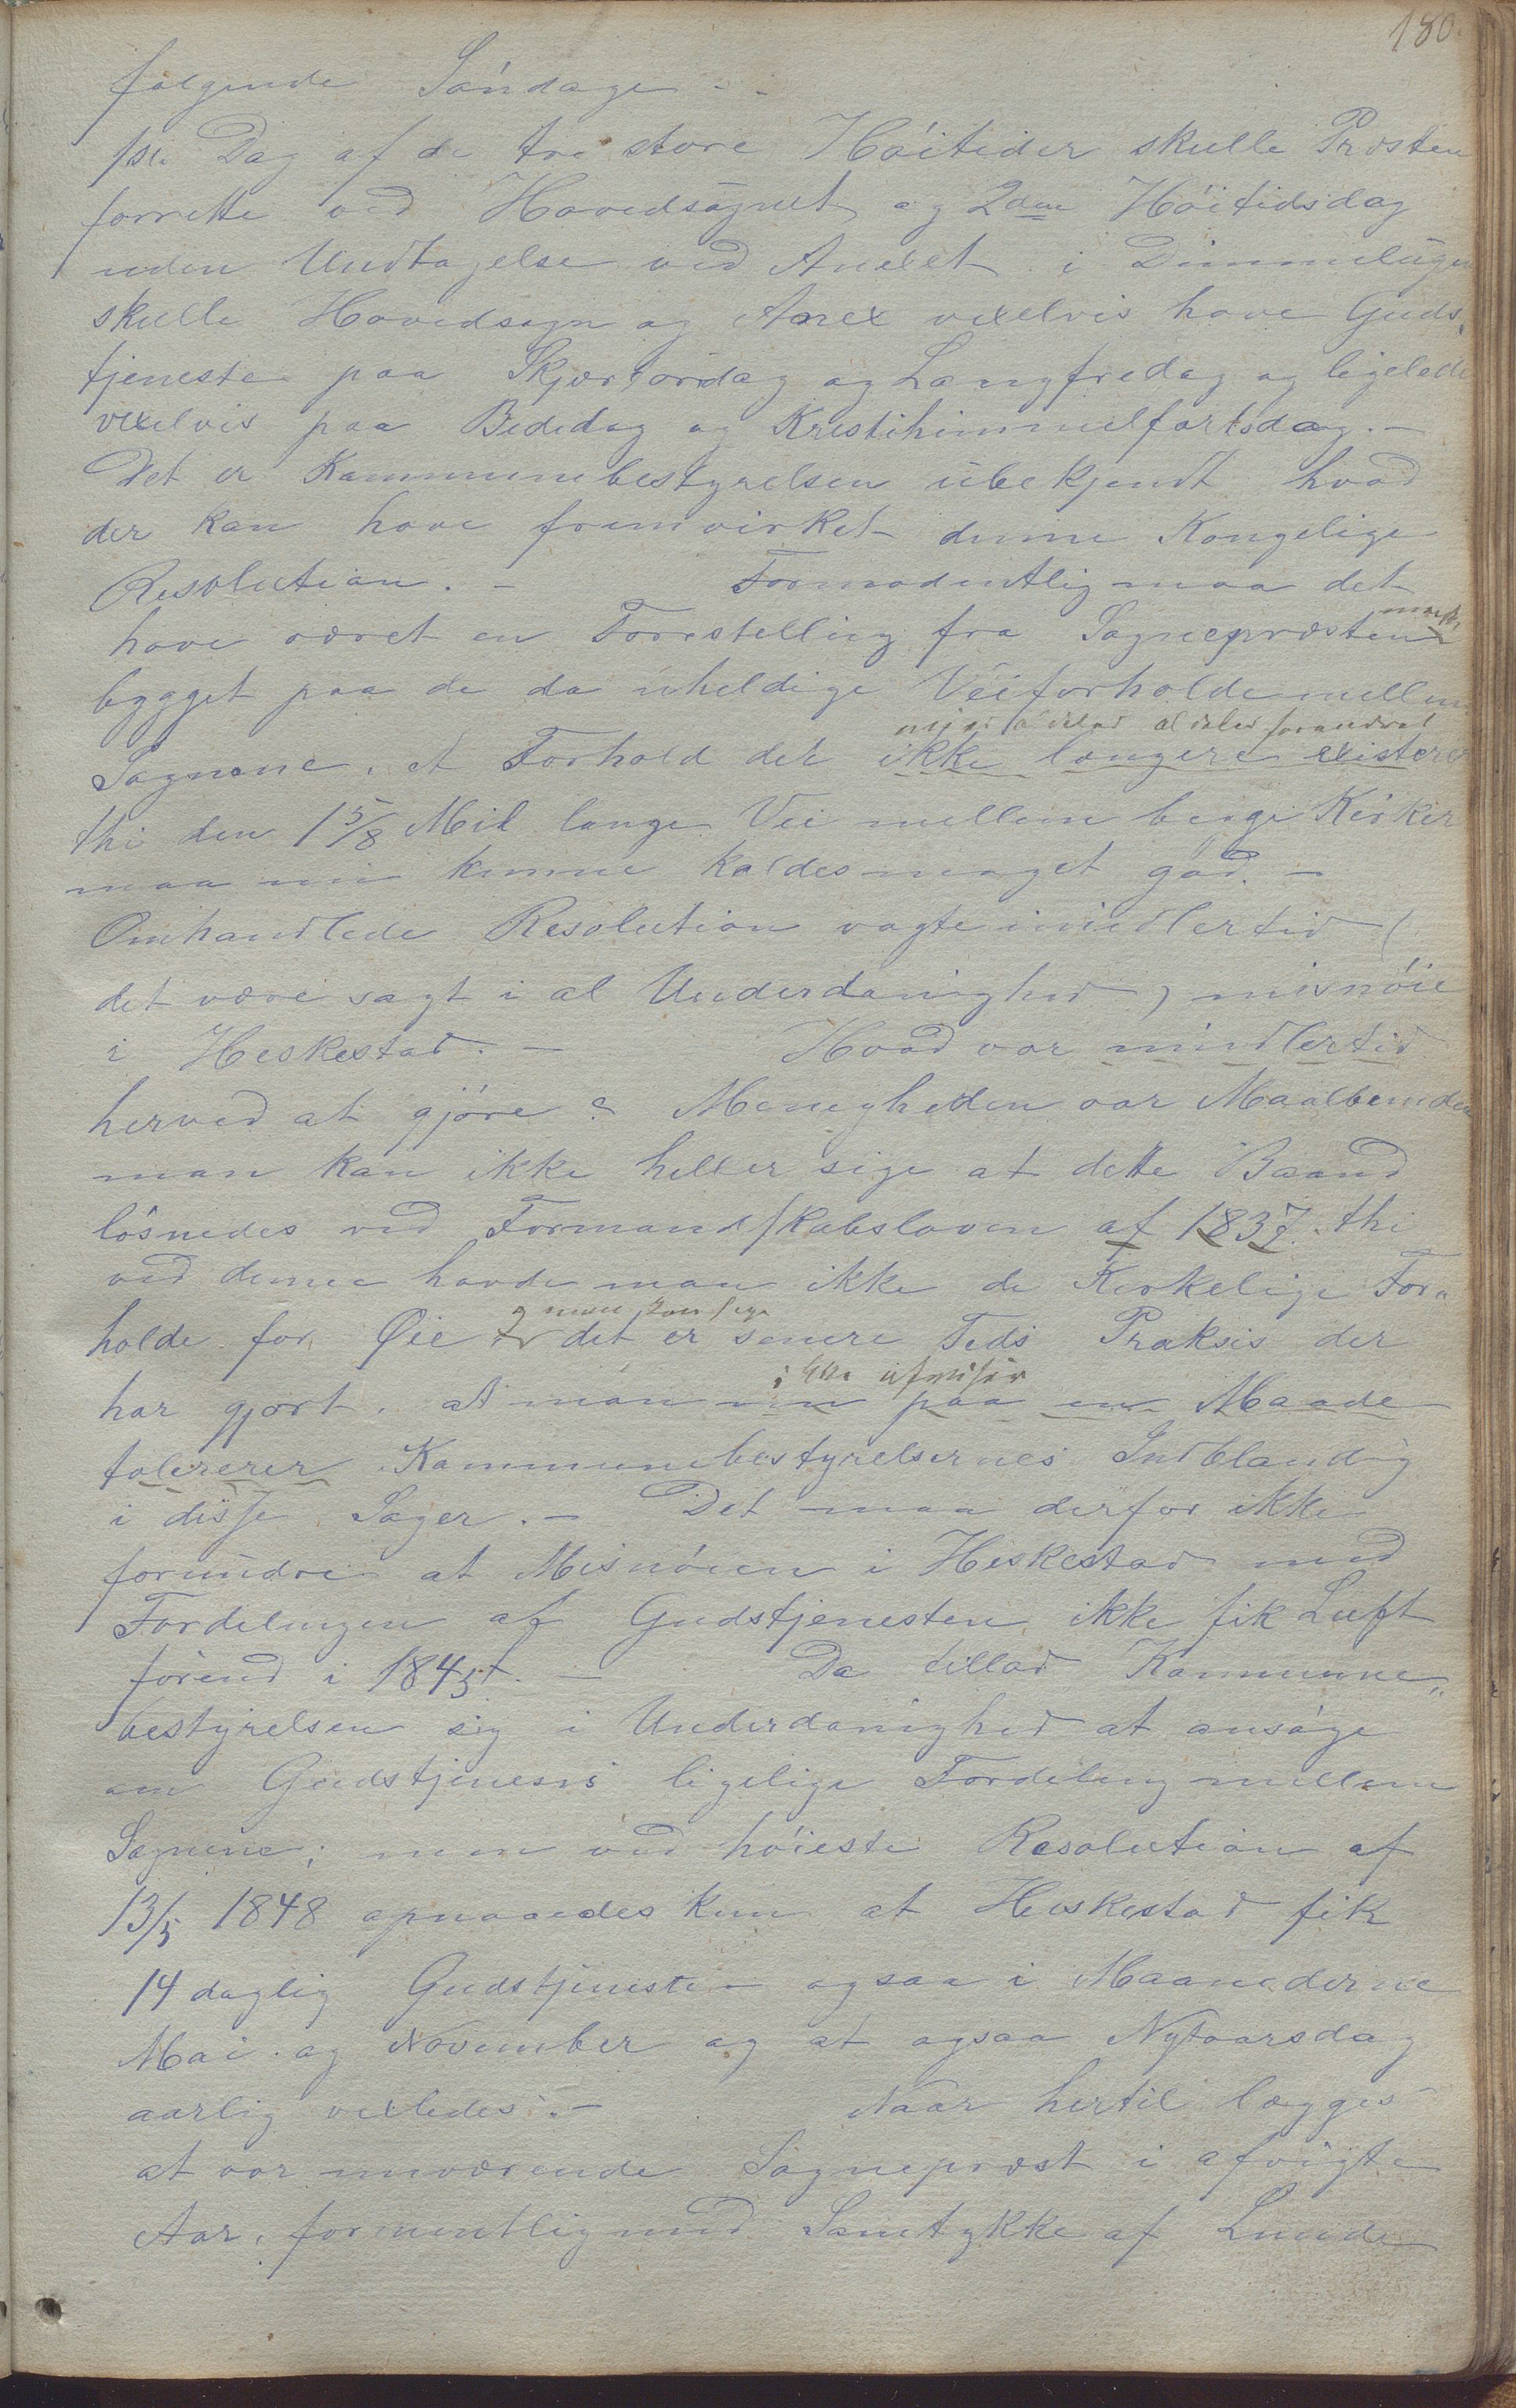 180.
følgende Søndage. -
1ste Dag af de tre store Høitider skulle Præsten
forrette ved Hovedsognet og 2den Høitidsdag
uden Undtagelse ved Anexet i Dimmelugen
skulle Hovedsogn og Anex vexelvis have Guds„
tjeneste paa Skjærtorsdag og Langfredag og ligelede
vexelvis paa Bededag og Kristihimmelfartsdag. -
Det er Kommunebestyrelsen ubekjendt hvad
der kan have fremvirket denne Kongelige
Resolution. - Formodentlig maa det
have været en Forestelling fra Sognepræsten
bygget paa de da uheldige Veiforholde mellem
aldeles forandret
Sognene, et Forhold der ikke længere existerer
thi den 1 5/8 Mil lange Vei mellem begge Kirker
maa nu kunne kaldes meget god. -
Omhandlede Resolution vagte imidlertid (
det være sagt i al Underdanighed) misnøie
i Heskestad. - Hvad var imidlertid
herved at gjøre? Menigheden var Maalbunden
man kan ikke heller sige at dette Baand
løsnedes ved Formandskabsloven af 1837. thi
ved denne havde man ikke de Kirkelige For„
man kan sige
holde for Øie det er senere Tids Praksis der
ikke afviser
har gjort, at man nu paa en Maade
tolererer Kommunebestyrelsernes Indblanding
i disse Sager. - Det maa derfor ikke
forundre at Misnøien i Heskestad med
Fordelingen af Gudstjenesten ikke fik Luft
førend i 1845. - Da tillod Kommune„
bestyrelsen sig i Underdanighed at ansøge
om Gudstjenesns ligelige Fordeling mellem
Sognene; men ved høieste Resolution af
13/5 1848 opnaaedes kun at Heskestad fik
14 daglig Gudstjeneste ogsaa i Maanederne
Mai og November og at ogsaa Nytaarsdag
aarlig vexledes. - Naar hertil lægges
at vor nuværende Sogneprest i afvigte
Aar, formentlig med Samtykke af Lunde